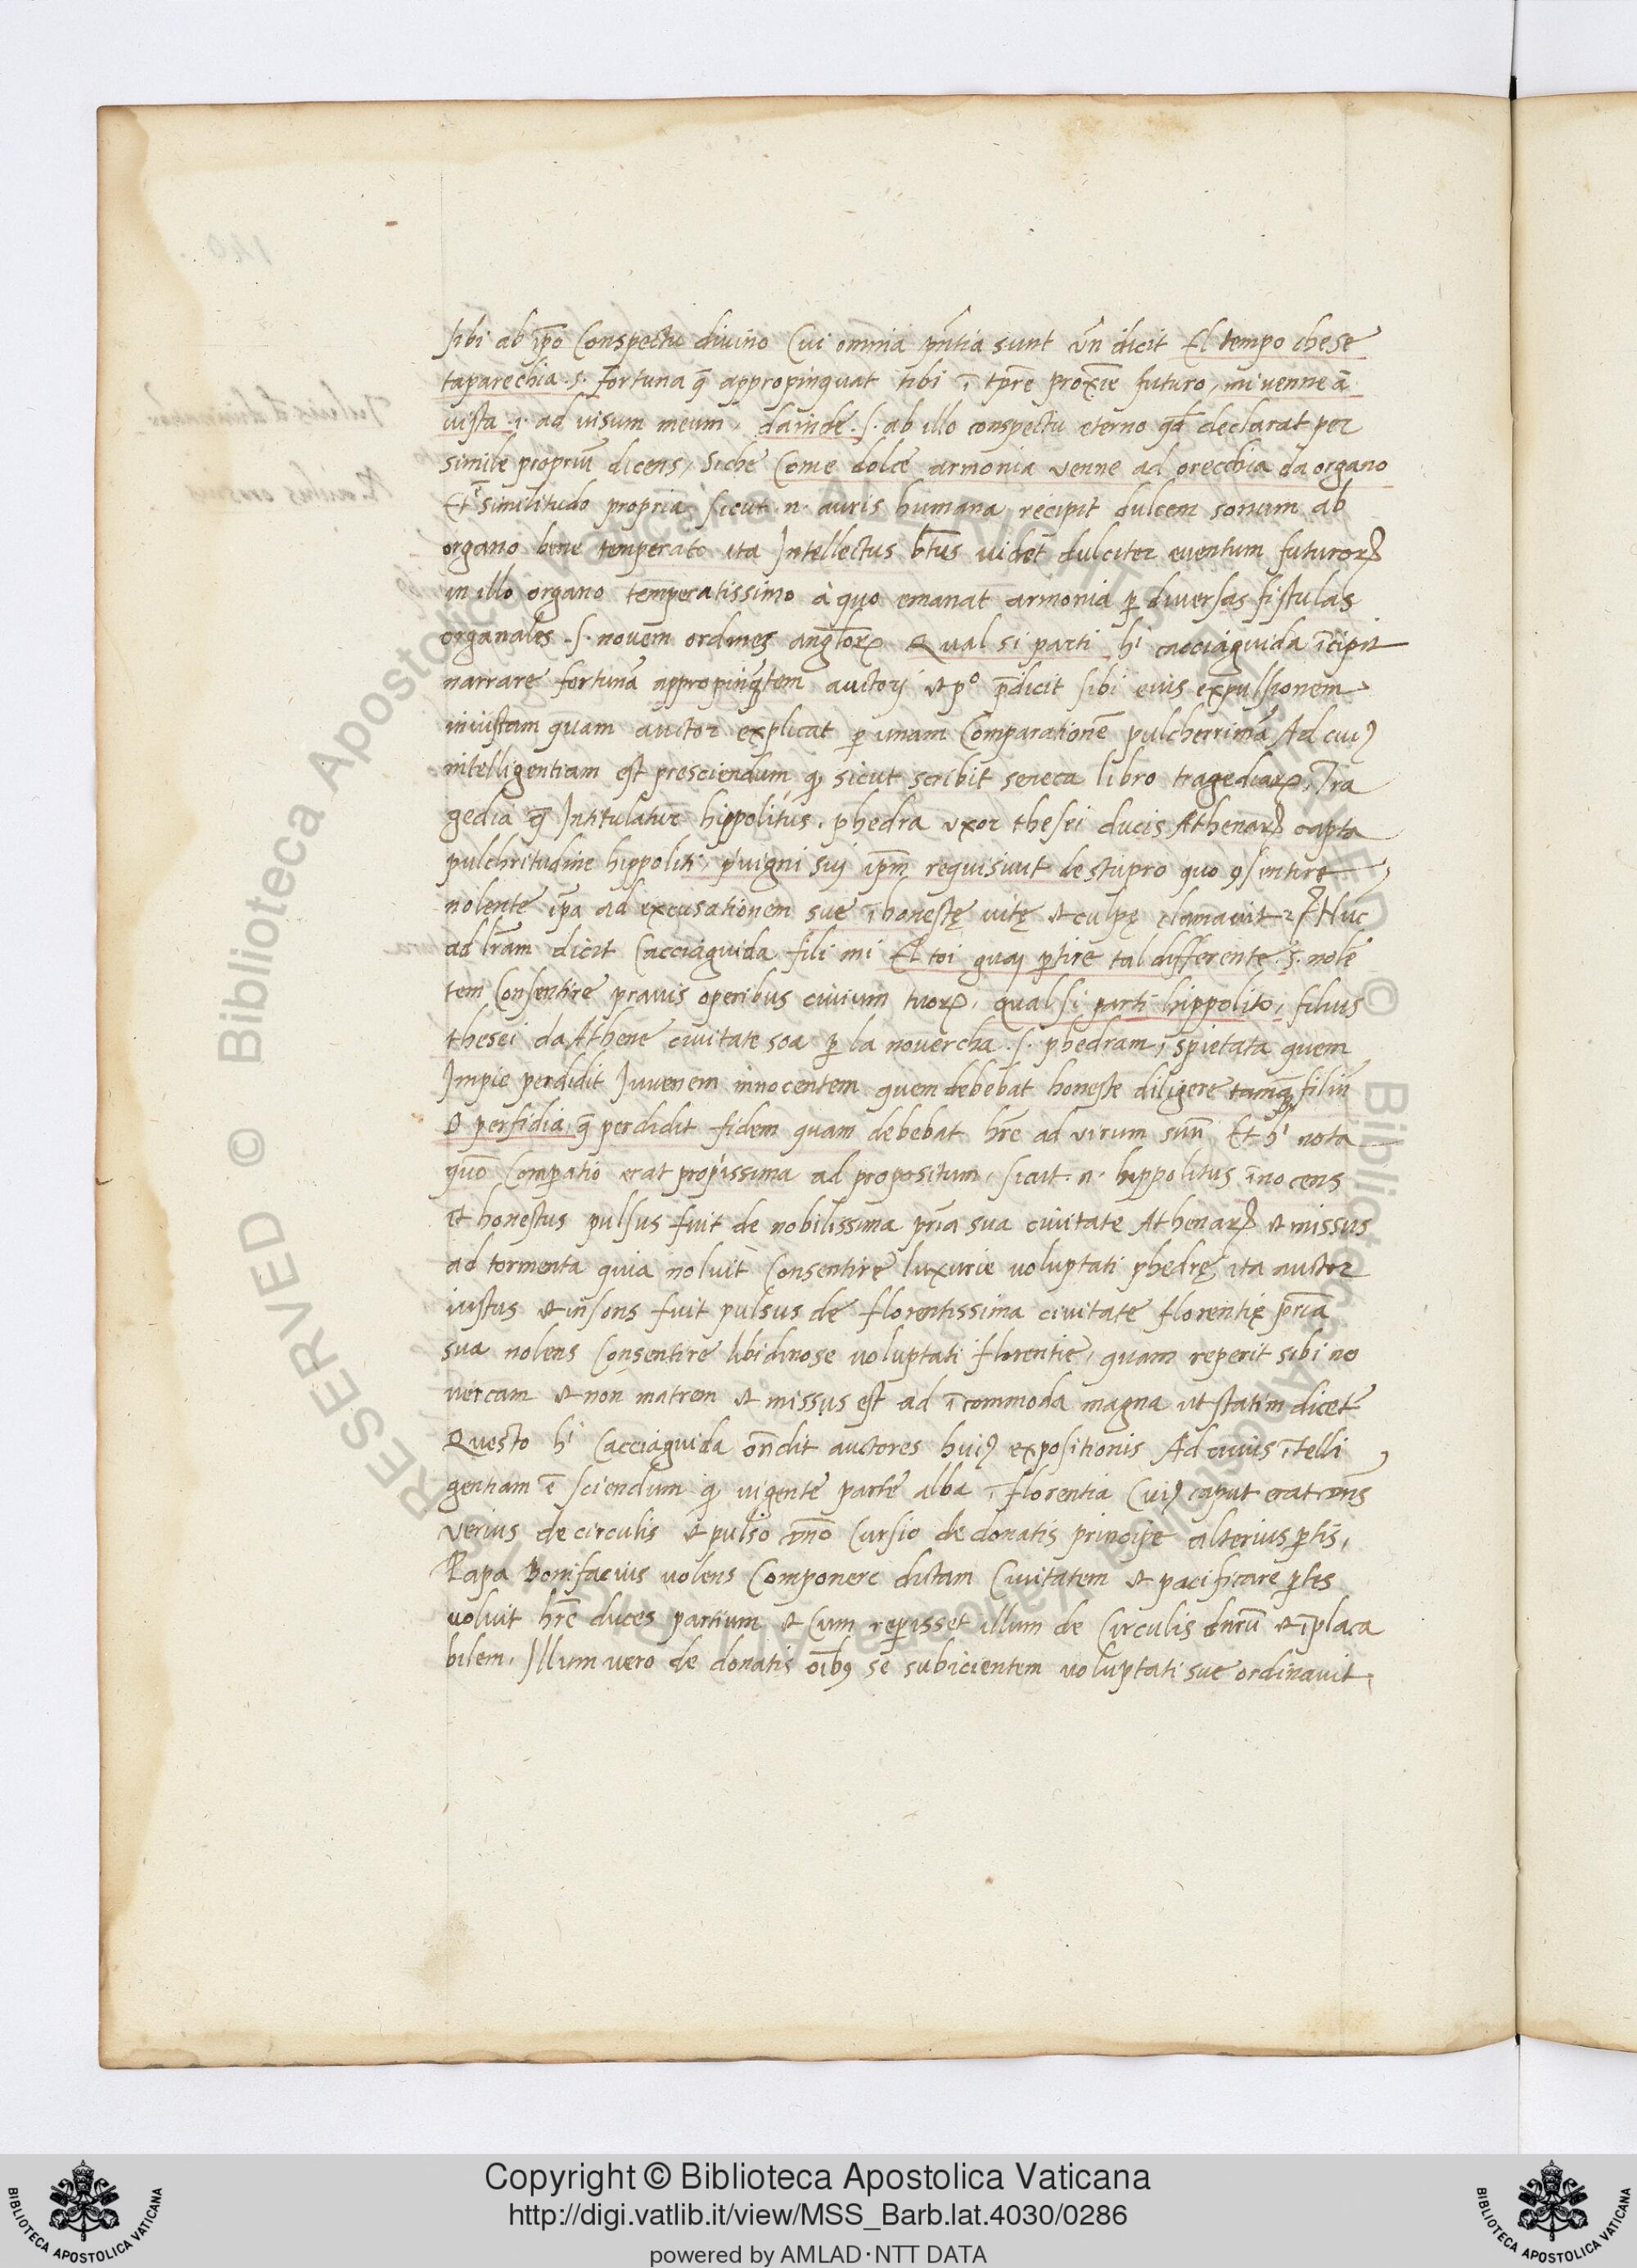 sibi ab ip̄o Conspectu diuino Cui omnia pñtia sunt vñ dicit El tempo chese
taparechia .s. Fortuna q̄ appropinquat tibi ī tp̄re proxīe futuro, mi uenne ā
uista .i. ad uisum meum, dainde .s. ab illo conspectu eterno qđ declarat per
simile propriū dicens, Siche Come dolce armonia venne ad orecchia da organo
Et ē similitudo propria sicut .n. auris humana recipit dulcem sonum ab
organo bene temperato ita Intellectus btūs uidet dulciter euentum futurorꝝ
in illo organo temperatissimo à quo emanat armonia ꝑ diuersas fistulas
organales .s. nouem ordines angłorꝝ Qual si parti hⁱ cacciaguida īcipit
narrare fortunā appropinq̄tem auctorj et pº p̄dicit sibi euis expulsionem
iniustam quam auctor explicat ꝑ unam Comparationē pulcherrimā Ad cuiꝰ
intelligentiam est presciendum ꝙ sicut scribit seneca libro tragediarꝝ, Tra
gedia q̄ Intitulatur hippolitus, phedra vxor thesei ducis Athenarꝝ capta
pulchritudine hippoliti, pⁱuigni suj ip̄m requisiuit de stupro quo ꝯsentire
nolente ip̄a ad excusationem sue īhonestę uitę et culpę clamauit Huc
ad lr̄am dicit Cacciaguida fili mi El toi guaj ꝑtire tal differente .s. nolē
tem Consentire prauis operibus ciuium tuorꝝ, qual si parti hippolito, filius
thesei da Athene ciuitate soa ꝑ la nouercha .s. phedram, spietata quem
Impie perdidit Iuuenem innocentem quem debebat honeste diligere tamq̄ filiū
O perfidia q̄ perdidit fidem quam debebat hr̄e ad virum suū Et hⁱ nota
quō Comꝑatio erat propⁱissima ad propositum, sicut .n. hippolitus īnocens
et honestus pulsus fuit de nobilissima pr̄ia sua ciuitate Athenarꝝ et missus
ad tormenta quia noluit Consentire luxurie uoluptati phedrę, ita auctor
iustus et insons fuit pulsus de florentissima ciuitate florentię pr̄ia
sua nolens Consentire libidinose uoluptati florentie, quam reperit sibi no
uercam et non matrem et missus est ad īcommoda magna ut statim dicet
Questo hⁱ Cacciaguida on̄dit auctores huiꝰ expositionis Ad cuius ītelli
gentiam ē sciendum ꝙ uigente parte alba ī florentia Cuiꝰ caput erat dn̄s
verius de circulis et pulso dn̄o Cursio de donatis principe alterius ꝑtis,
Papa Bonifacius uolens Componere dictam Ciuitatem et pacificare ꝑtes
uoluit hr̄e duces partium et Cum reꝑisset illum de Circulis durū et īplaca
bilem, Illum uero de donatis oībꝰ se subicientem uoluptati sue ordinauit,
Copyright © Biblioteca Apostolica Vaticana
http://digi.vatlib.it/view/MSS_Barb.lat.4030/0286
powered by AMLAD·NTT DATA